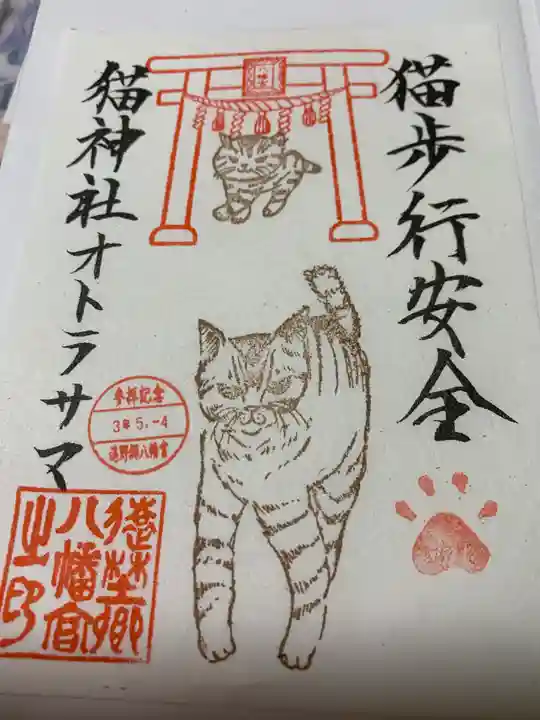 猫歩行安全
猫神社オトラサマ
参拝記念
3年5.-4
遠野郷八幡宮
遠野郷
八幡宮
之印